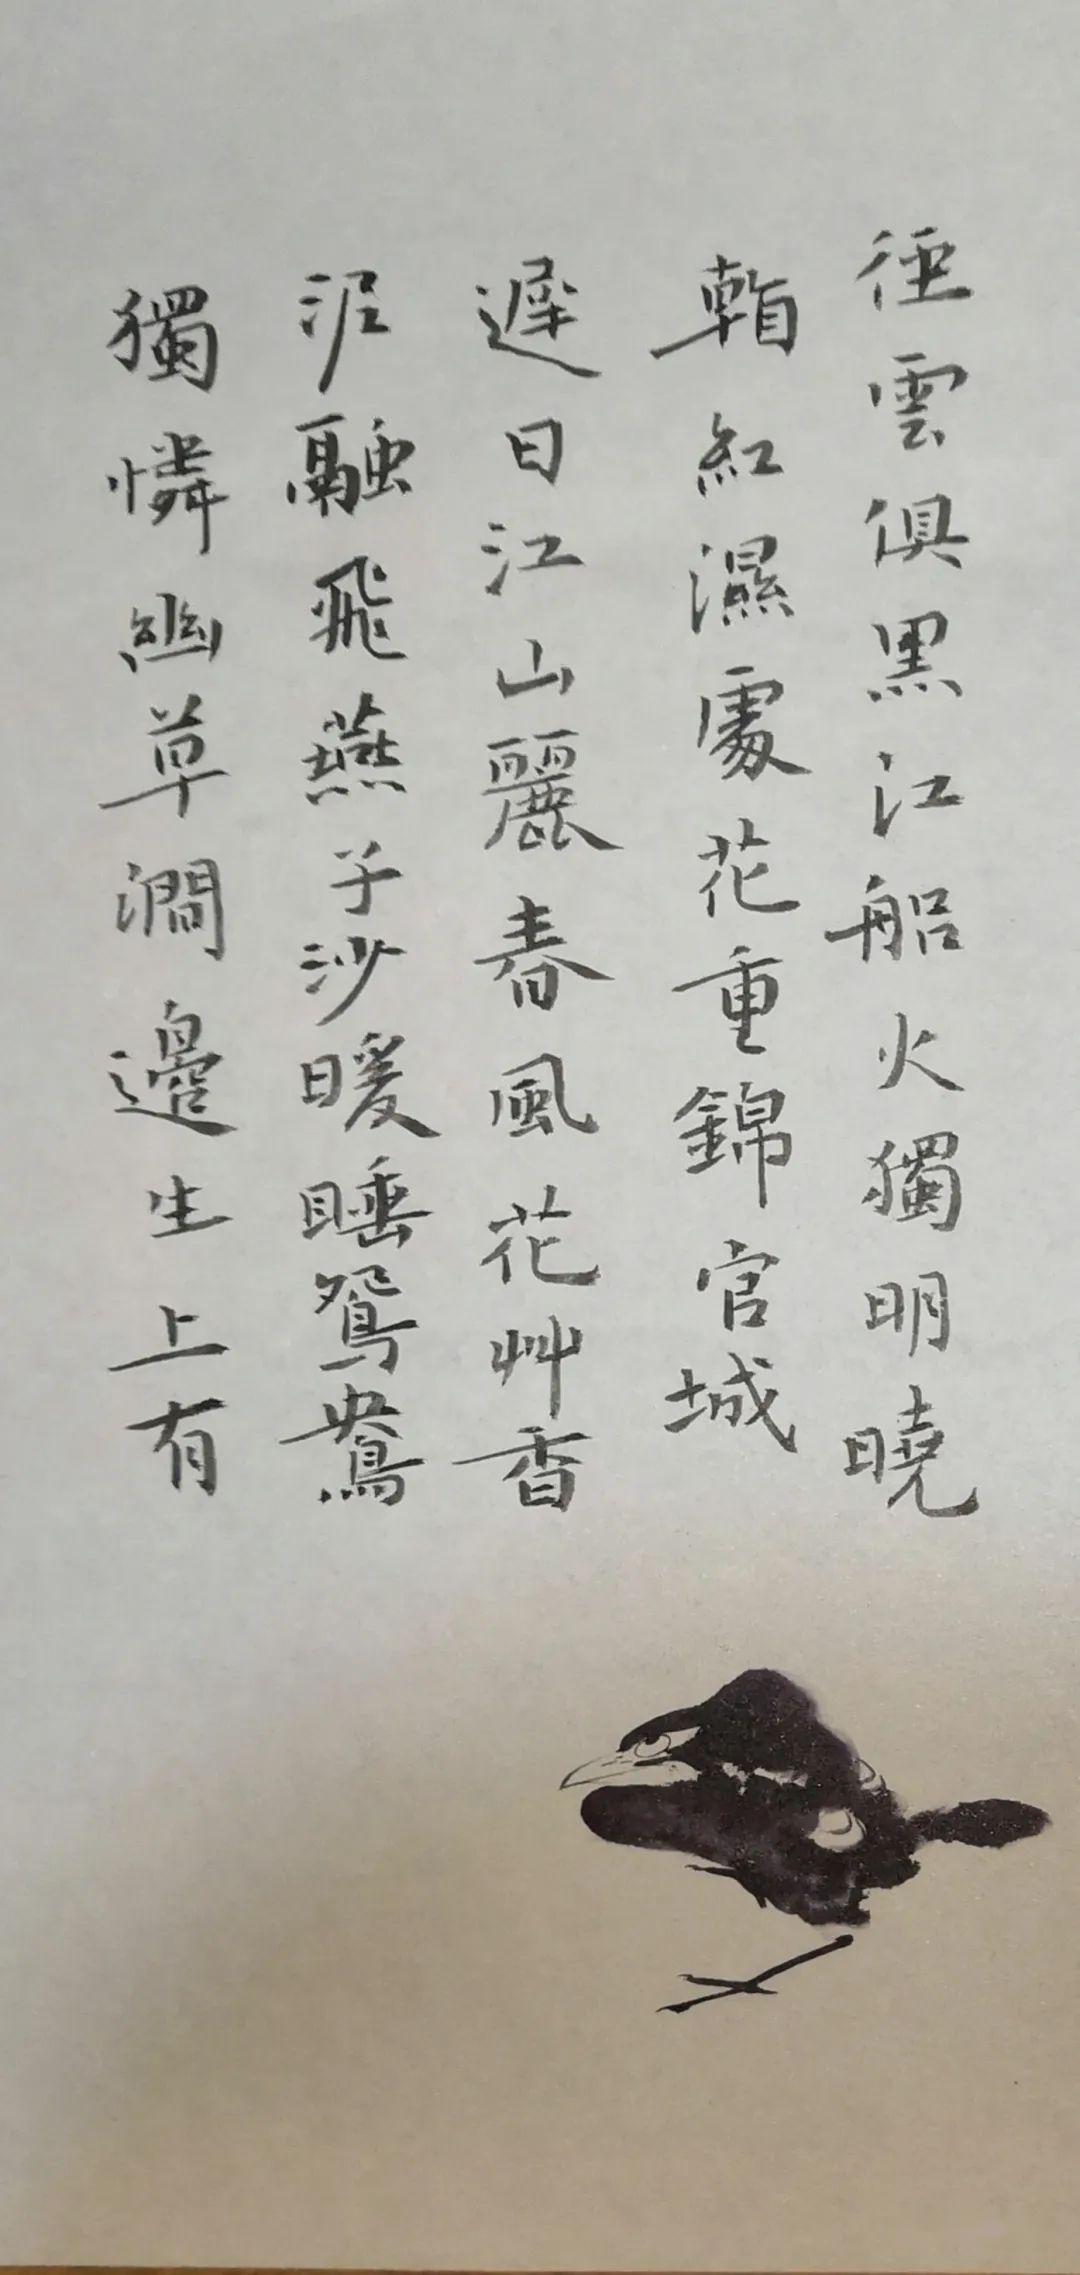 徑雲俱黑江船火獨明曉
看紅濕處花重錦官城
遲日江山麗春風花艸香
泥融飛燕子沙暖睡鴛鴦
獨憐幽草澗邊生上有